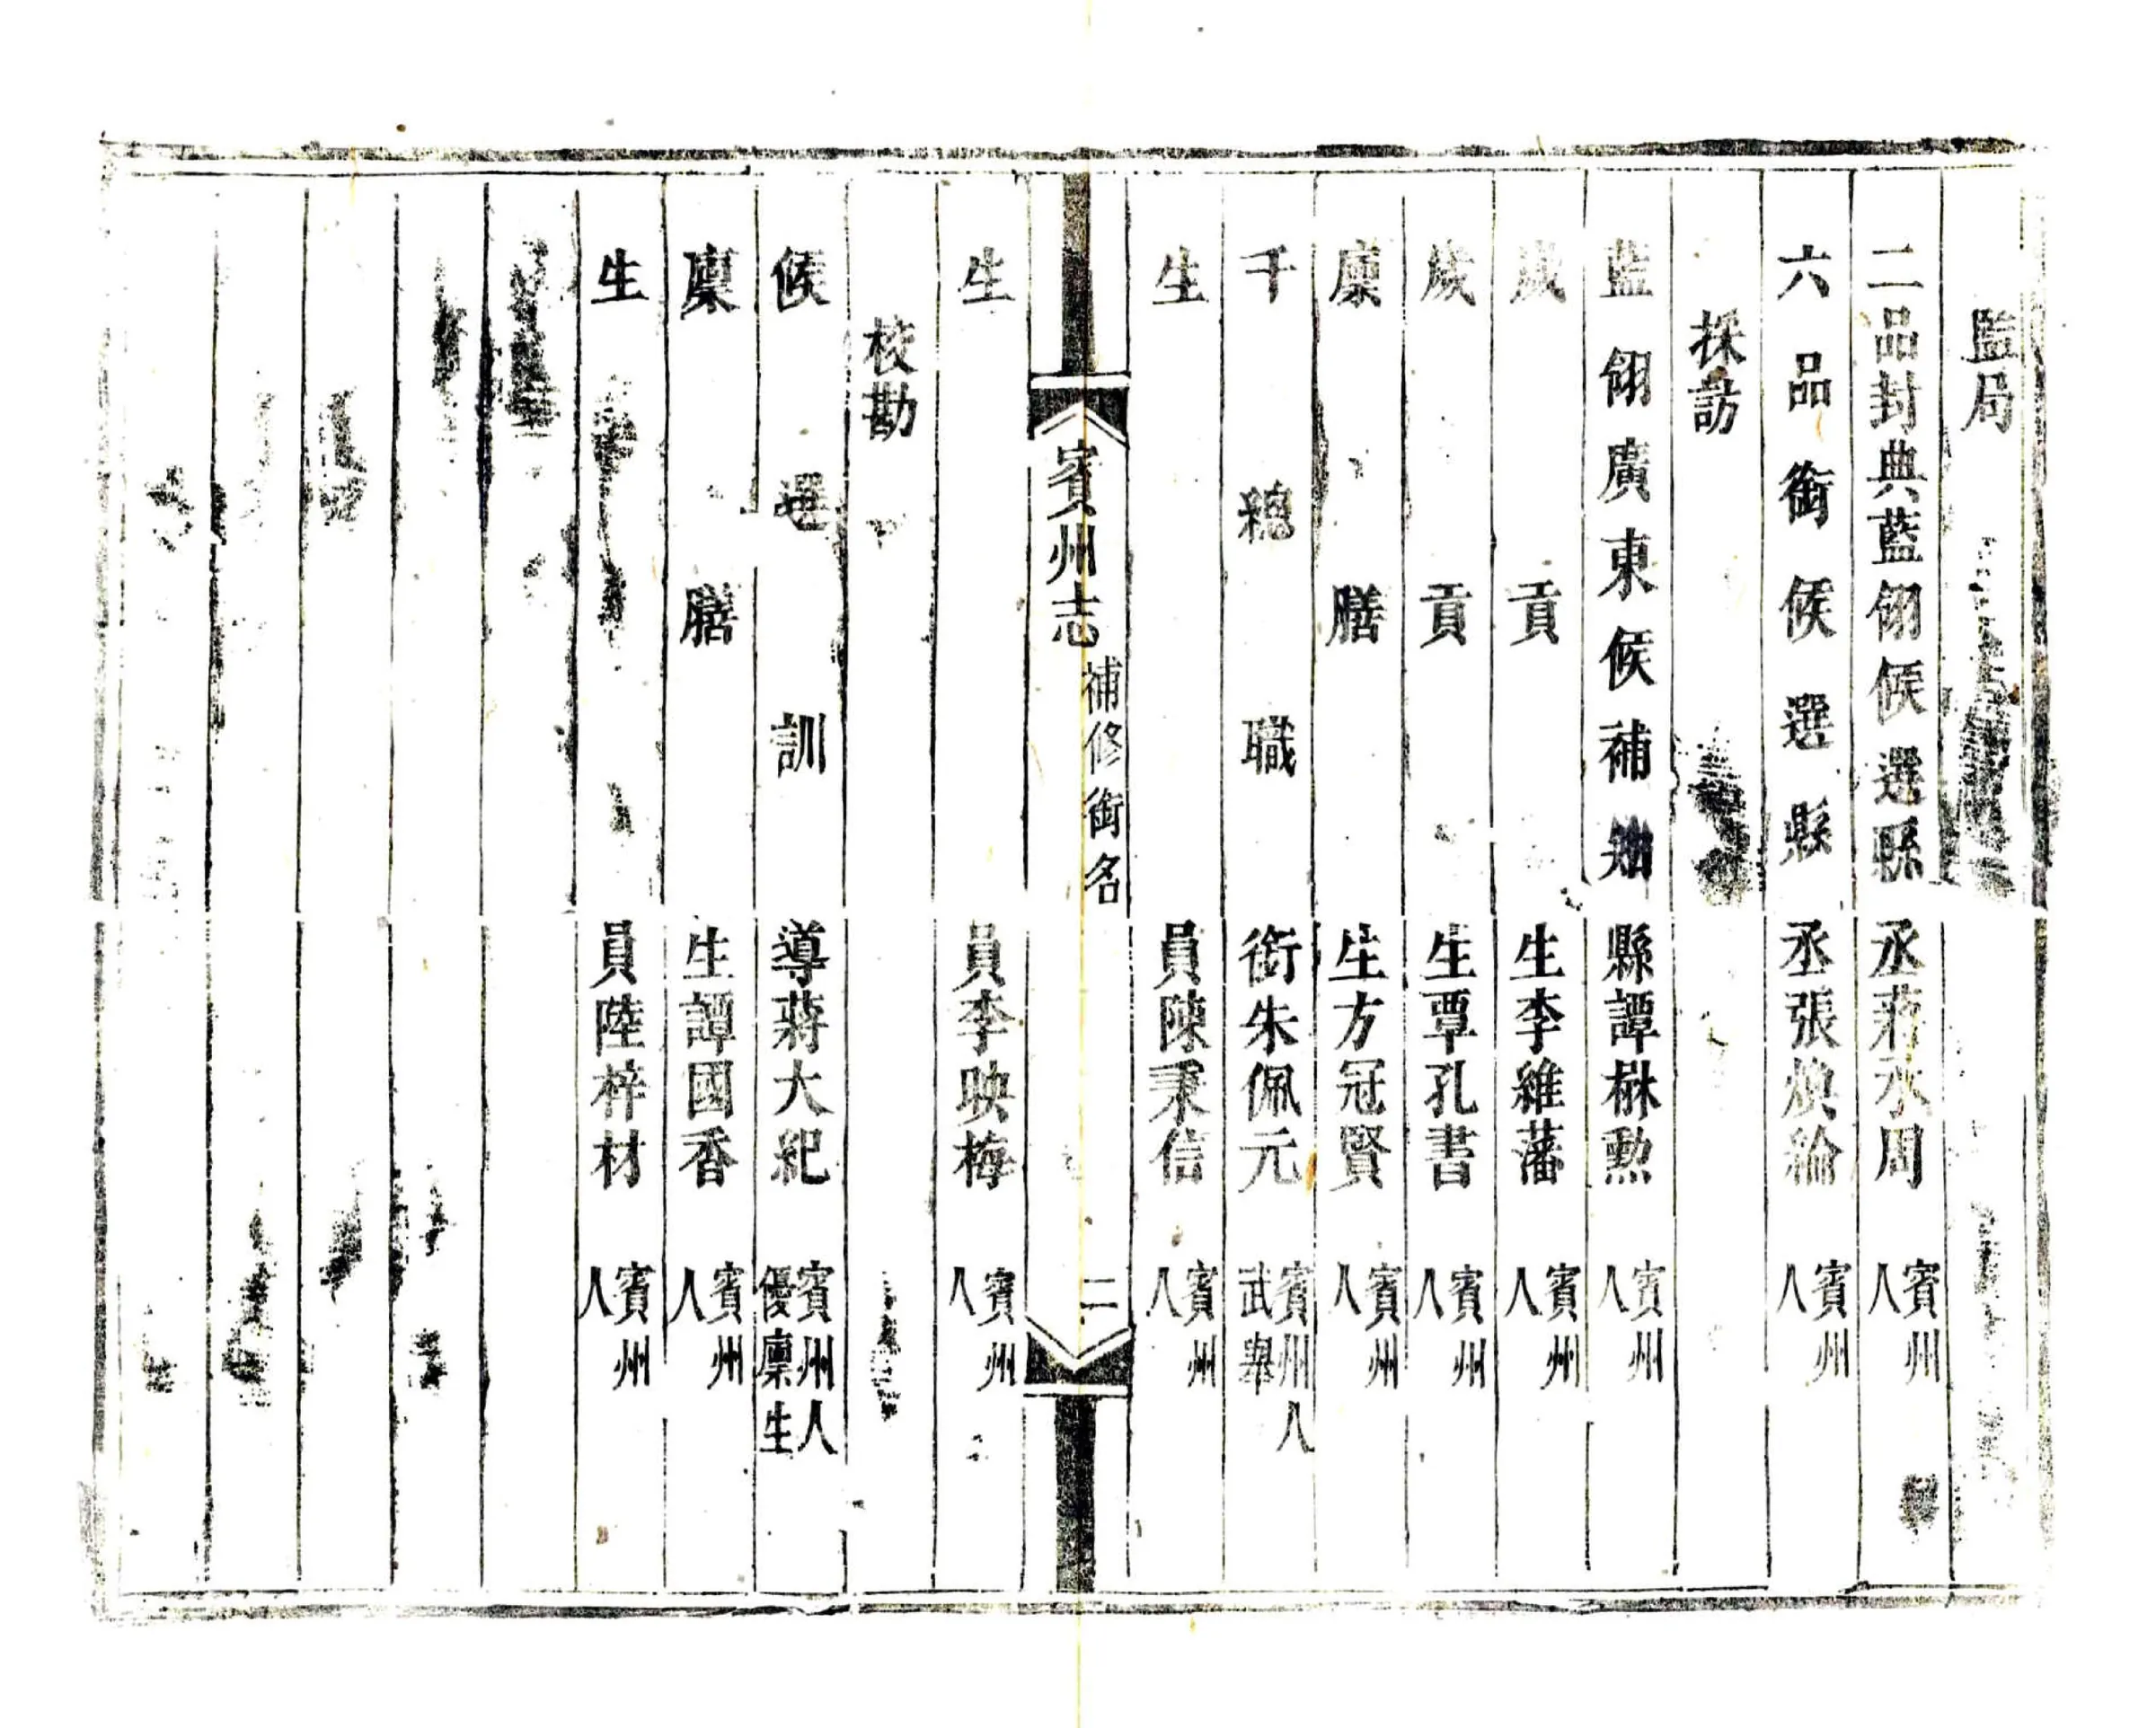 監局
二品封典藍翎候選縣丞蔣承周賓州人
六品銜候選縣丞張煥綸賓州人
採訪
藍翎廣東候補知縣譚楙勲賓州人
歲貢生李維藩賓州人
歲貢生覃孔書賓州人
廩膳生方冠賢賓州人
千總職銜朱佩元賓州人武舉
生員陳秉信賓州人
賓州志 補修銜名 二
生員李映梅賓州人
校勘
候選訓導蔣大紀賓州人優廩生
廩膳生譚國香賓州人
生員陸梓材賓州人